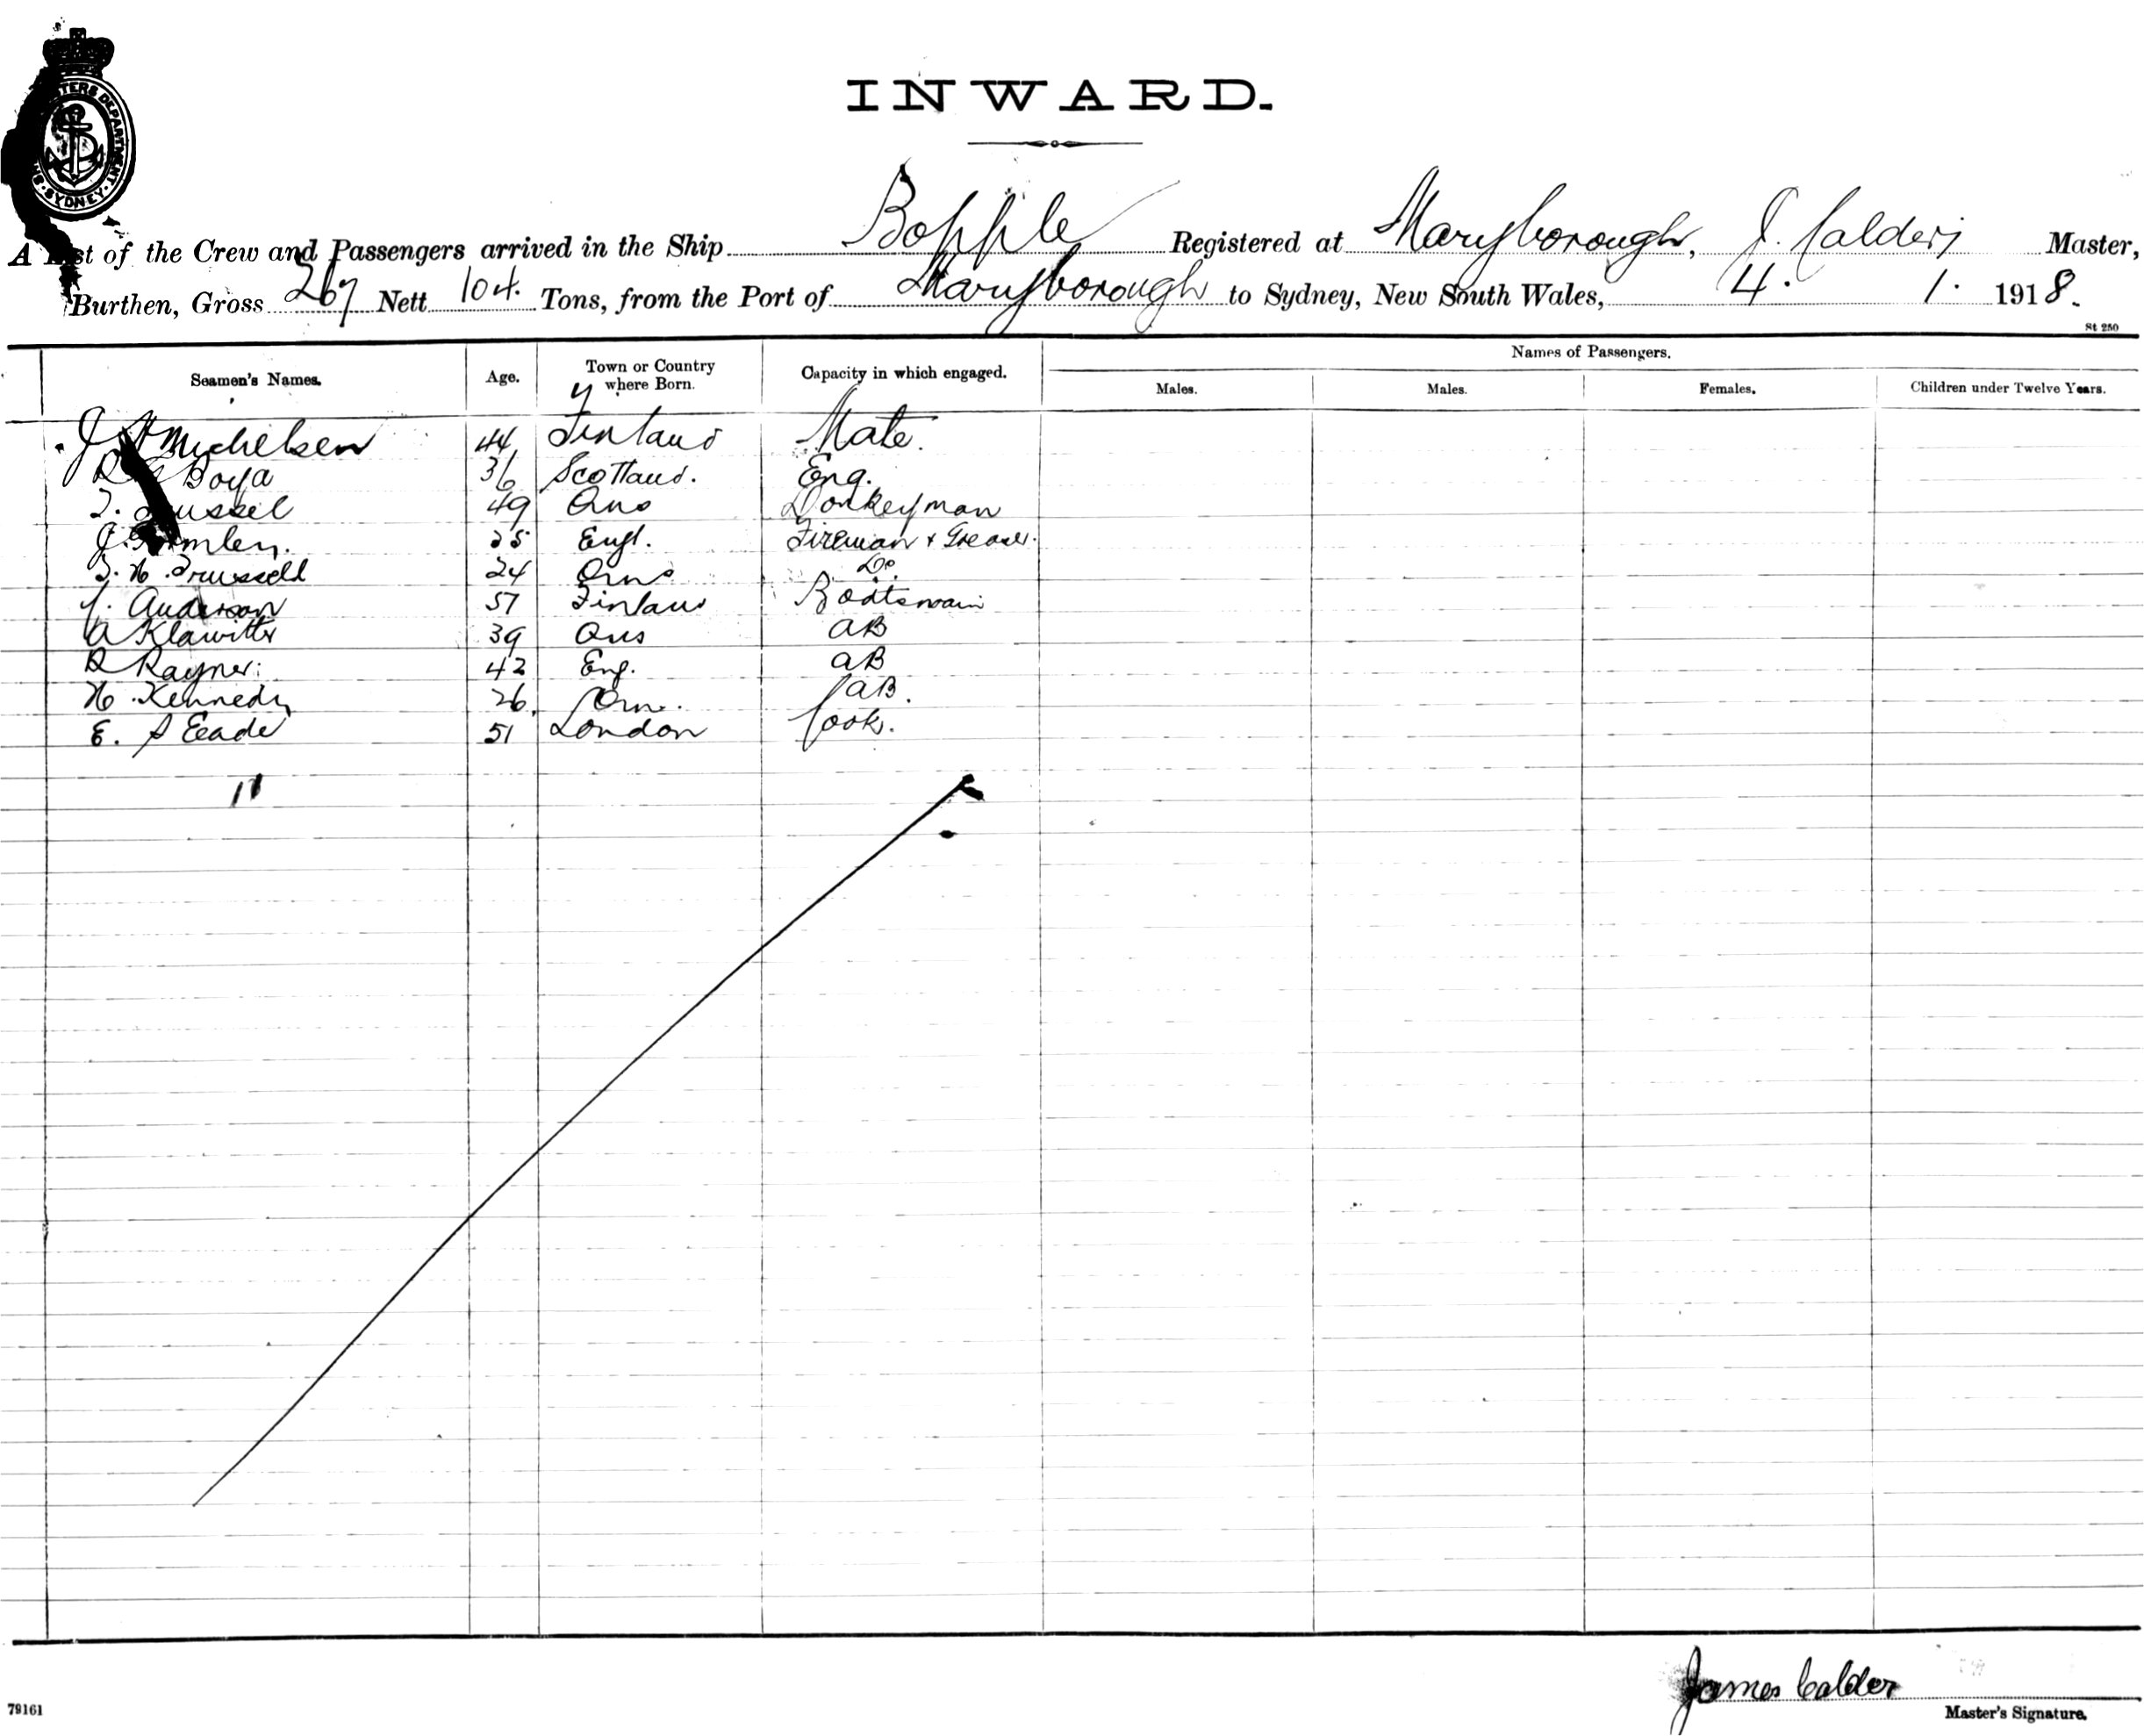 INWARD.
A List of the Crew and Passengers arrived in the Ship Bopple Registered at Maryborough, J. Calder Master,
Burthen, Gross 267 Nett 104. Tons, from the Port of Maryborough to Sydney, New South Wales, 4. 1. 1918.
St 250
Seamen's Names. Age. Town or Country where Born. Capacity in which engaged. Names of Passengers.
Males. Males. Females. Children under Twelve Years.
Michelsen 44 Finland Mate.
36 Scotland. Eng.
49 Donkeyman
25 Engl. Fireman & Greaser.
24 Do.
Anderson 57 Finland Boatswain
A Klawitter 39 AB
R Rayner. 42 Eng. AB
H Kennedy 26. AB.
E. S Eade 51 London Cook.
11
James Calder
Master's Signature.
79161